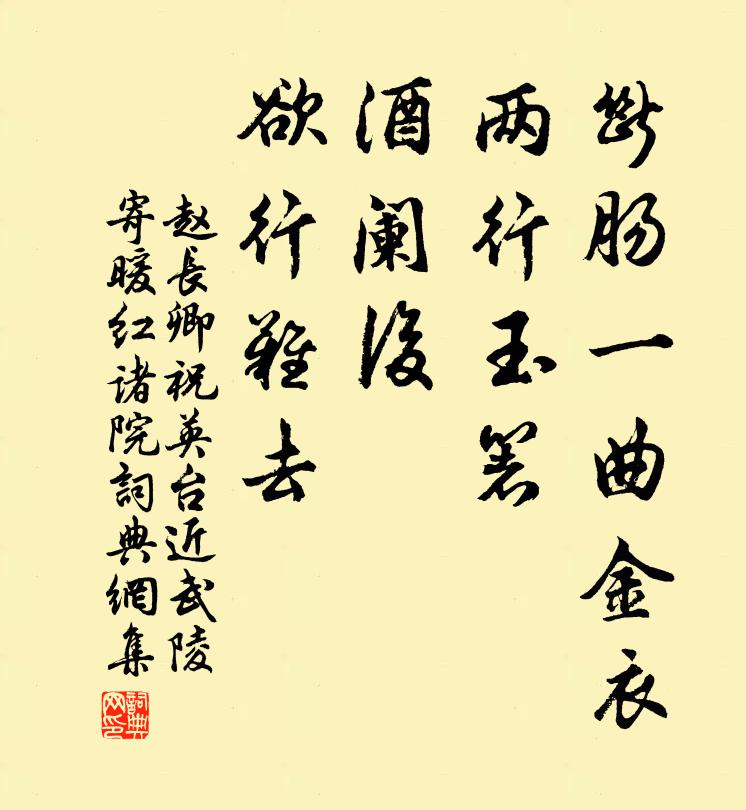 断肠一曲金衣
两行玉箸
酒阑后
欲行难去
赵長卿祝英台近武陵
寄暖红诸院詞典網集
詞典网印